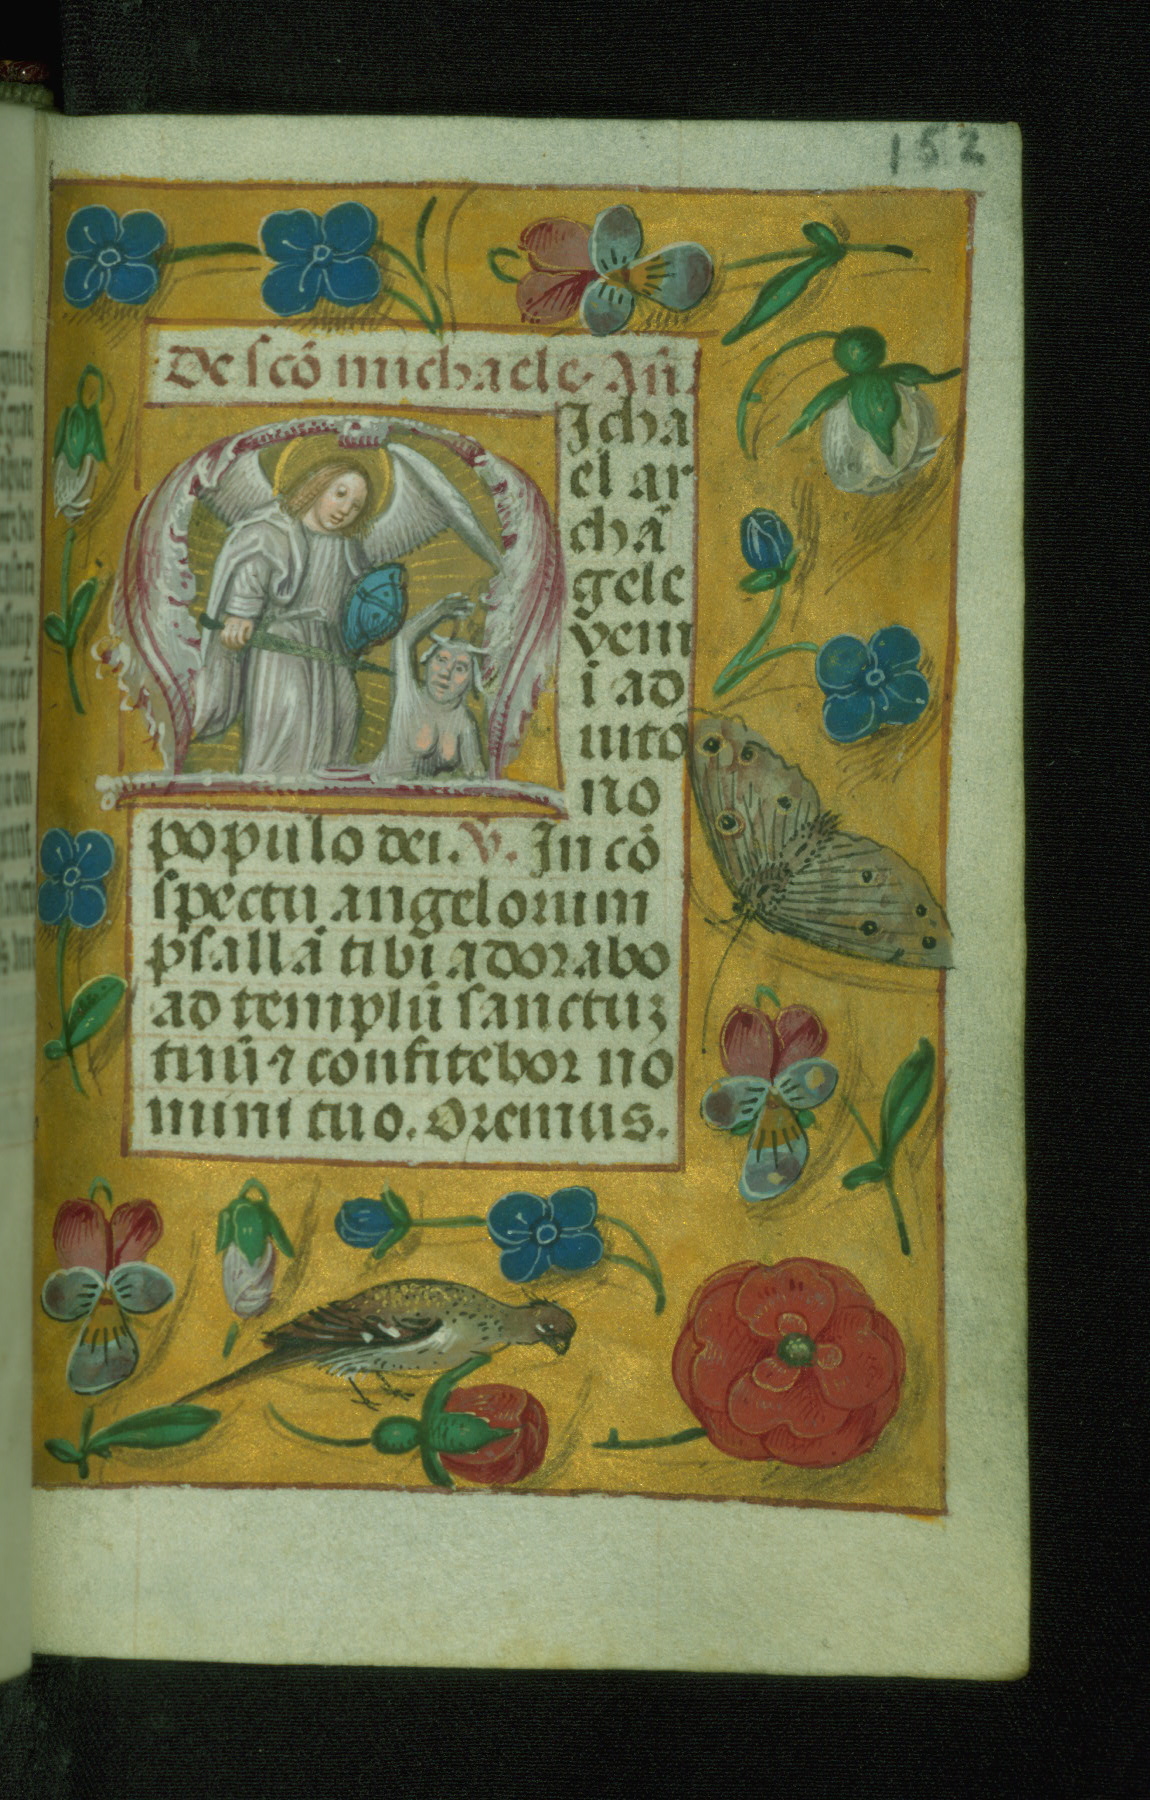 152
De scō michaele. Añ.
Icha
el ar
chā
gele
veni
i ad
iuto
no
populo dei. V. In cō
spectu angelorum
psallā tibi adorabo
ad templū sanctuȝ
tuū ⁊ confitebor no
mini tuo. Oremus.